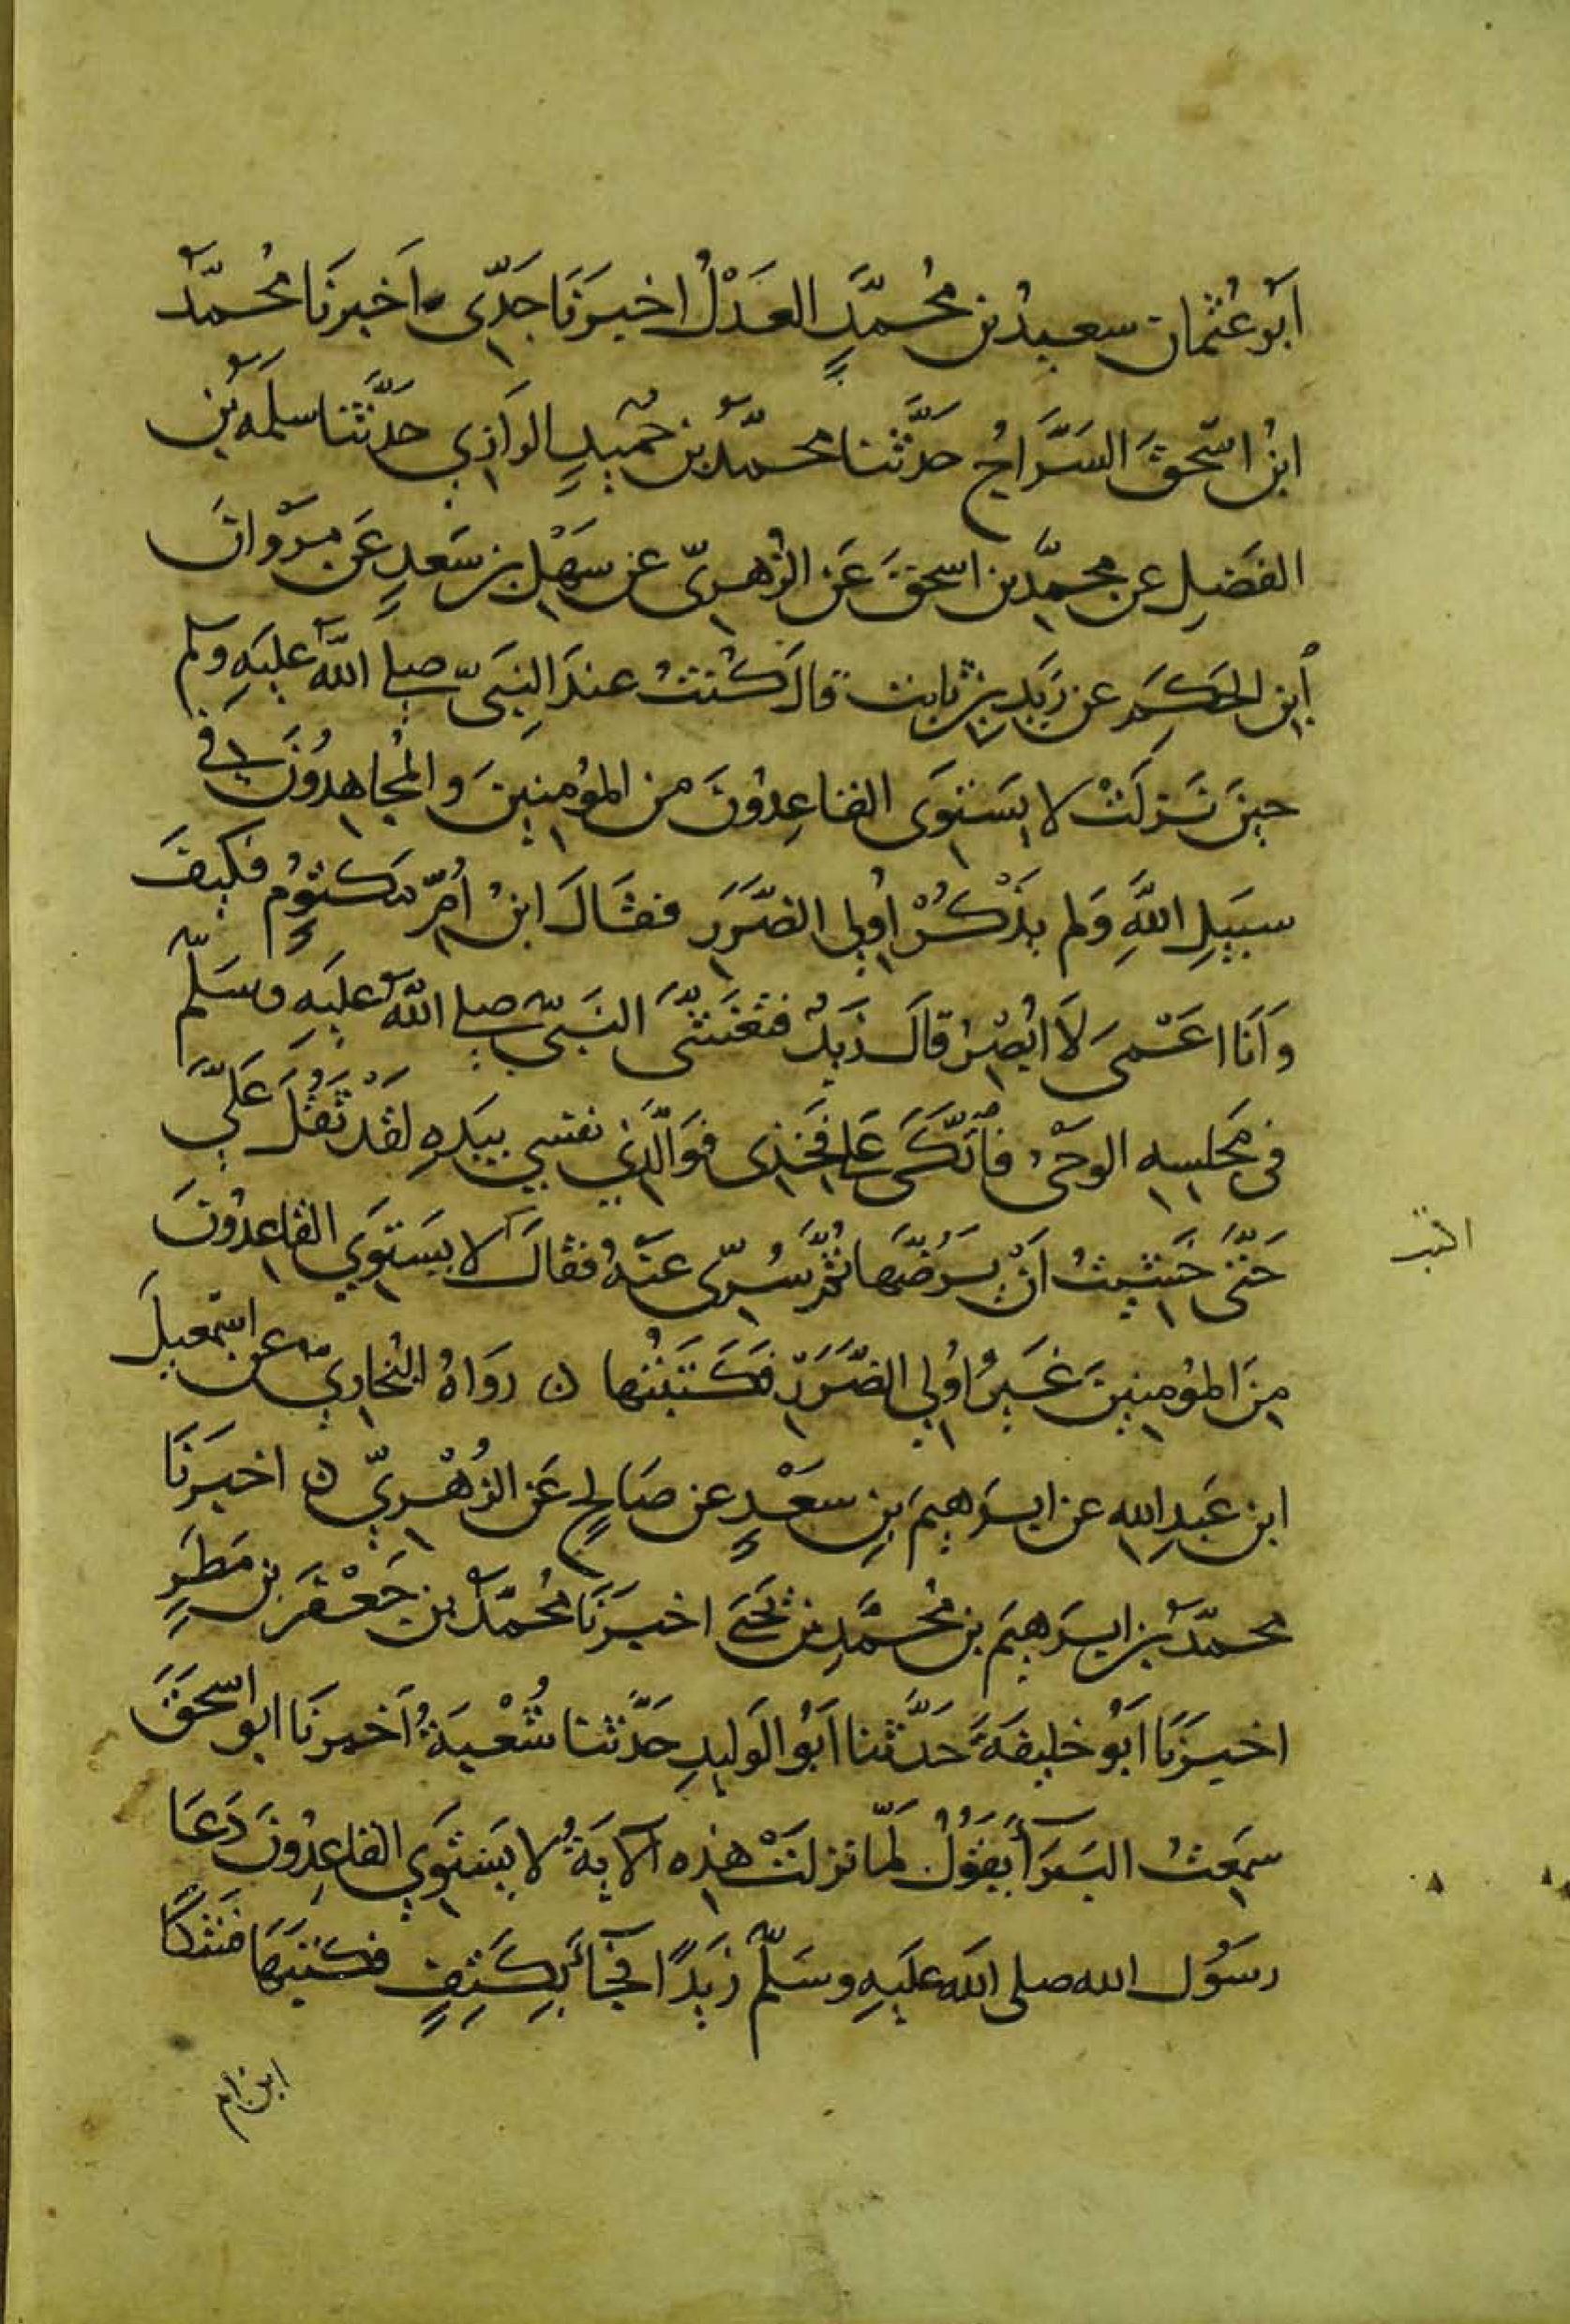 أبو عثمان سعيد بن محمد العدل اخبرنا جدي اخبرنا محمد
ابن اسحق السراج حدثنا محمد بن حميد الرازي حدثنا سلمه بن
الفضيل عن محمد بن اسحق عن الزهري عن سهل بن سعد عن مروان
ابن الحكم عن زيد بن ثابت قال كنت عند النبي صلى الله عليه وسلم
حين نزلت لا يستوى القاعدون من المؤمنين والمجاهدون في
سبيل الله ولم يذكر اولي الضرر فقال ابن ام مكتوم فكيف
وانا اعمى لا ابصر قال زيد فتغشى النبي صلى الله عليه وسلم
في مجلسه الوحى فاتكى على فخذى فوالذي نفسي بيده لقد ثقل علي
حتى خشيت ان يرضها ثم سرى عنه فقال لا يستوي القاعدون
اكتب
من المؤمنين غير اولي الضرر فكتبتها ن رواه البخاري عن اسمعيل
ابن عبد الله عن ابرهيم بن سعد عن صالح عن الزهري ن اخبرنا
محمد بن ابرهيم بن محمد بن يحيى اخبرنا محمد بن جعفر بن مطر
اخبرنا ابو خليفة حدثنا ابو الوليد حدثنا شعبة اخبرنا ابو اسحق
سمعت البرآ يقول لما نزلت هذه الآية لا يستوي القاعدون دعا
رسول الله صلى الله عليه وسلم زيدا فجآء بكتف فكتبها فشكا
ابن ام